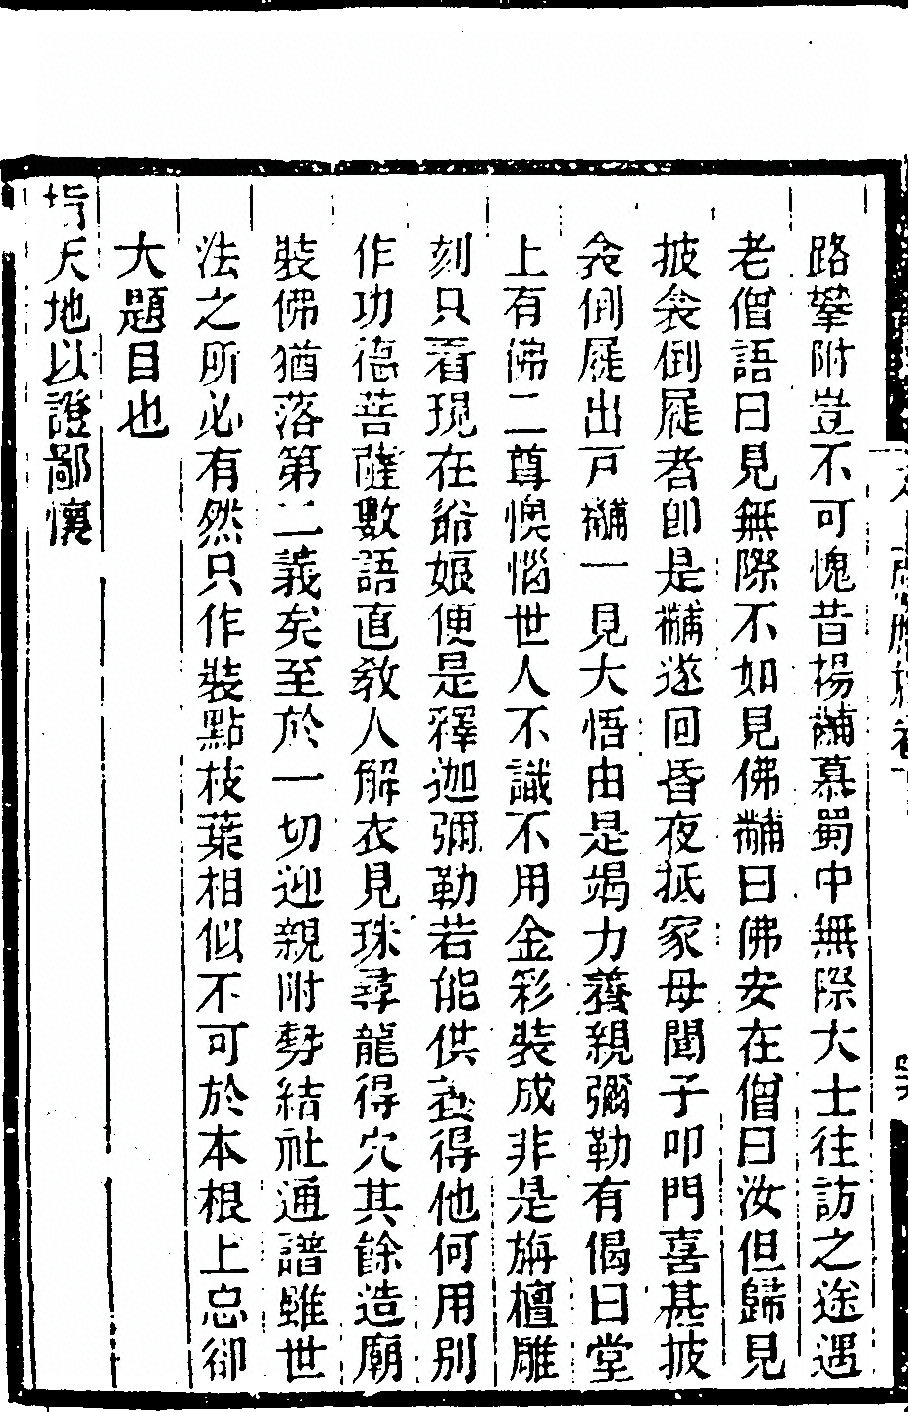 路攀附豈不可愧昔揚黼慕蜀中無際大士往訪之途遇
老僧語曰見無際不如見佛黼曰佛安在僧曰汝但歸見
披衾倒屣者卽是黼遂回昏夜抵家母聞子叩門喜甚披
衾倒屣出戸黼一見大悟由是竭力養親彌勒有偈曰堂
上有佛二尊懊惱世人不識不用金彩裝成非是旃檀雕
刻只看現在爺娘便是釋迦彌勒若能供養得他何用別
作功德菩薩數語直敎人解衣見珠尋龍得穴其餘造廟
裝佛猶落第二義矣至於一切迎親附勢結社通譜雖世
法之所必有然只作裝點枝葉相似不可於本根上忘卻
大題目也
指天地以證鄙懷